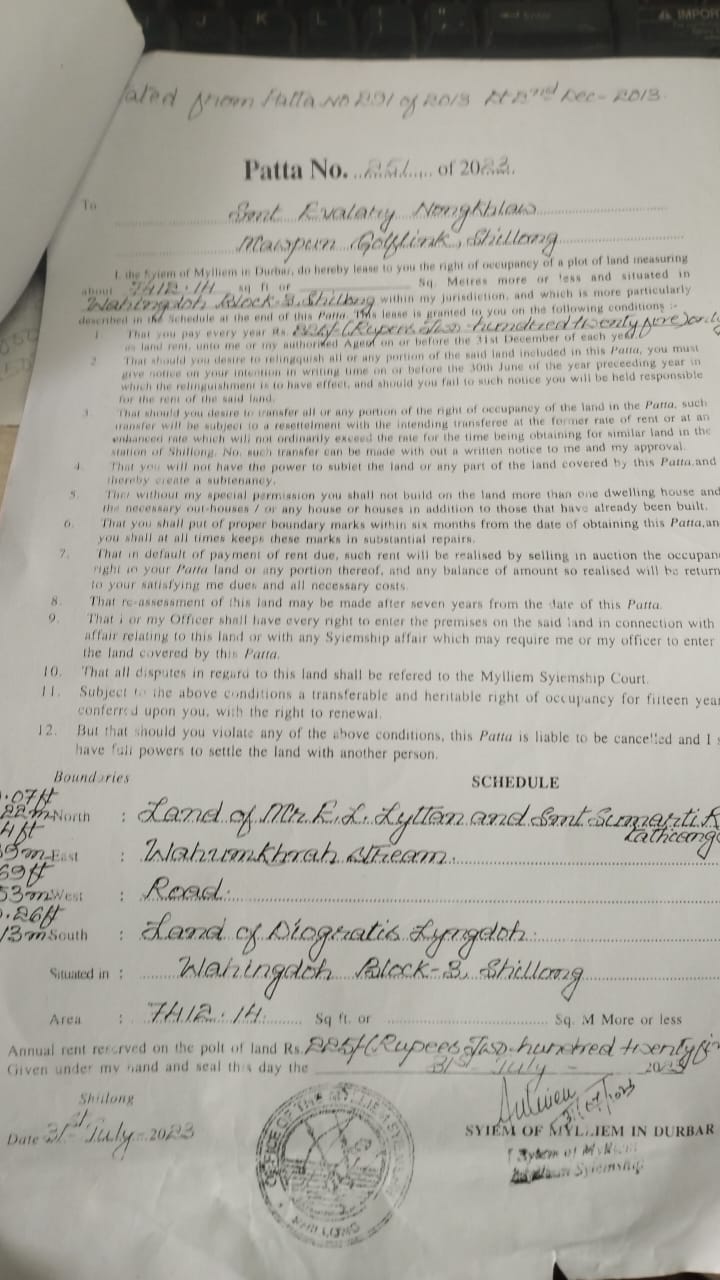 ated from Patta No 291 of 2013 Dt 2nd Dec- 2013.
Patta No. of 2023.
To
Smt Evalany Nongkhlaw
Mawpun Golflink, Shillong
I, the Syiem of Mylliem in Durbar, do hereby lease to you the right of occupancy of a plot of land measuring
about 7412.14 sq ft or Sq. Metres more or less and situated in
Wahingdoh Block-3, Shillong within my jurisdiction, and which is more particularly
described in the Schedule at the end of this Patta. This lease is granted to you on the following conditions :-
1. That you pay every year Rs. 225/-(Rupees Two-hundered twenty five) only
as land rent, unto me or my authorised Agent on or before the 31st December of each year
2. That should you desire to relingquish all or any portion of the said land included in this Patta, you must
give notice on your intention in writing time on or before the 30th June of the year preceeding year in
which the relinguishment is to have effect, and should you fail to such notice you will be held responsible
for the rent of the said land.
3. That should you desire to transfer all or any portion of the right of occupancy of the land in the Patta, such
transfer will be subject to a resettelment with the intending transferee at the former rate of rent or at an
enhanced rate which will not ordinarily exceed the rate for the time being obtaining for similar land in the
station of Shillong. No. such transfer can be made with out a written notice to me and my approval.
4. That you will not have the power to sublet the land or any part of the land covered by this Patta.and
thereby create a subtenancy.
5. That without my special permission you shall not build on the land more than one dwelling house and
the necessary out-houses / or any house or houses in addition to those that have already been built.
6. That you shall put of proper boundary marks within six months from the date of obtaining this Patta,an
you shall at all times keeps these marks in substantial repairs.
7. That in default of payment of rent due, such rent will be realised by selling in auction the occupan
right in your Patta land or any portion thereof, and any balance of amount so realised will be return
to your satisfying me dues and all necessary costs.
8. That re-assessment of this land may be made after seven years from the date of this Patta.
9. That i or my Officer shall have every right to enter the premises on the said land in connection with
affair relating to this land or with any Syiemship affair which may require me or my officer to enter
the land covered by this Patta.
10. That all disputes in regard to this land shall be refered to the Mylliem Syiemship Court.
11. Subject to the above conditions a transferable and heritable right of occupancy for fifteen year
conferred upon you, with the right to renewal.
12. But that should you violate any of the above conditions, this Patta is liable to be cancelled and I s
have full powers to settle the land with another person.
Boundaries SCHEDULE
.07ft
22m North : Land of Mr E.L. Lyttan and Smt Sumanti R
4ft
9m East : Wahumkhrah Stream.
69ft
53m West : Road.
.26ft
13m South : Land of Diognatis Lyngdoh.
Situated in : Wahingdoh Block-3, Shillong
Area : 7412.14 Sq ft. or Sq. M More or less
Annual rent reserved on the polt of land Rs. 225/-(Rupees Two-hundred twenty fi
Given under my hand and seal this day the 31st July - 2023
Shillong
Date 31st July - 2023
31/07/2023
SYIEM OF MYLLIEM IN DURBAR
Syiem of Mylliem
Mylliem Syiemship
OFFICE OF THE MYLLIEM SYIEMSHIP
SHILLONG